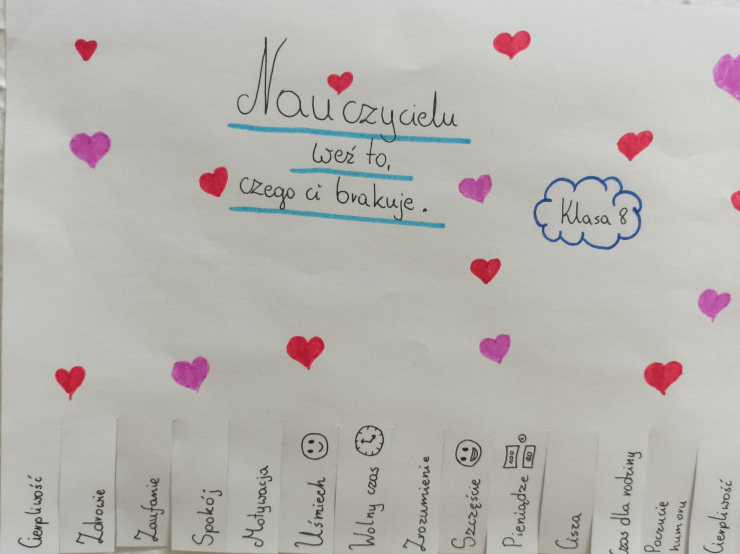 Nauczycielu
weź to,
czego ci brakuje.
Klasa 8
Cierpliwość
Zdrowie
Zaufanie
Spokój
Motywacja
Uśmiech
Wolny czas
Zrozumienie
Szczęście
Pieniądze
100
Cisza
Czas dla rodziny
Poczucie
humoru
Cierpliwość